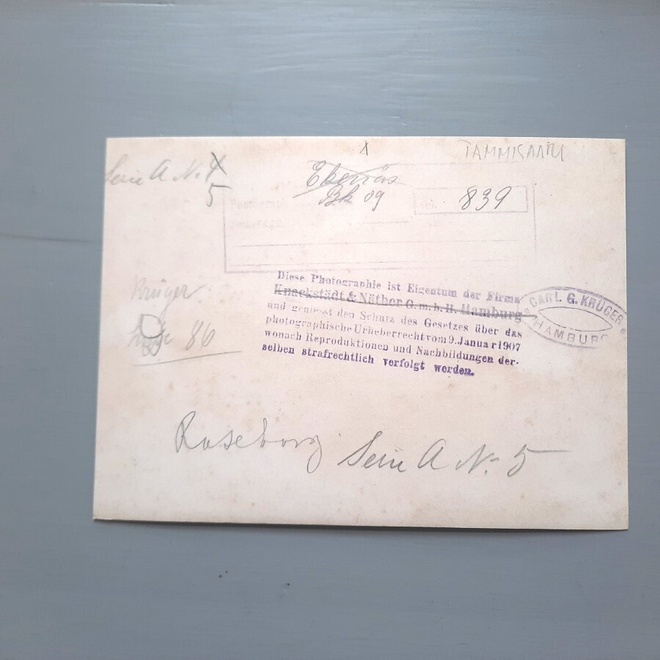 1
TAMMISAARI
Serie A N: 4
5
Ekenäs
Bk 09
839
Krüger
86
Diese Photographie ist Eigentum der Firma
Knackstädt & Näther G.m.b.H. Hamburg
und geniesst den Schutz des Gesetzes über das
photographische Urheberrecht vom 9. Januar 1907
wonach Reproduktionen und Nachbildungen der-
selben strafrechtlich verfolgt werden.
CARL G. KRÜGER
HAMBURG
Raseborg Serie A N: 5